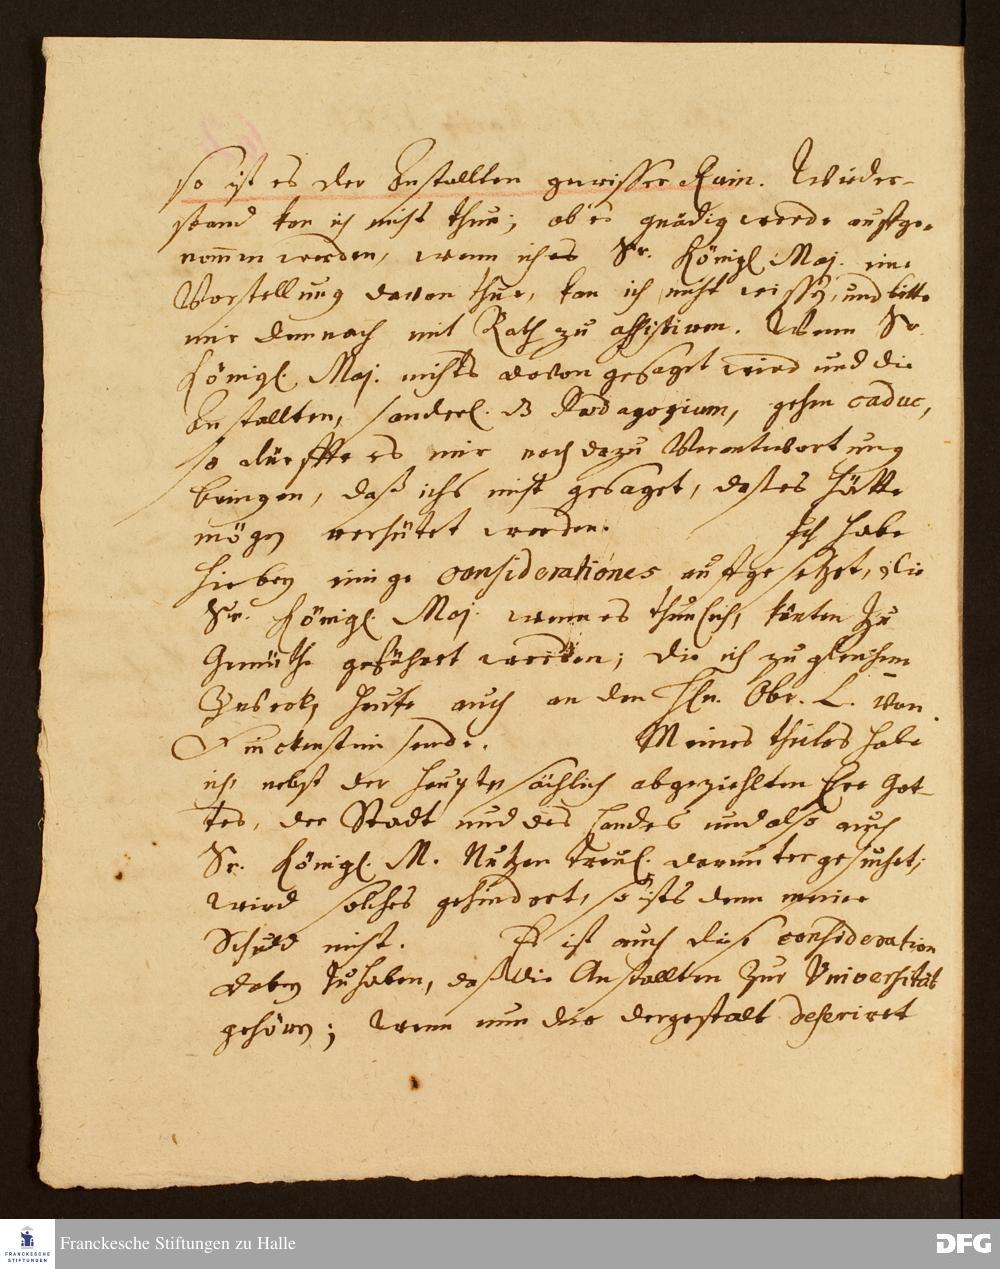 so ist es der Anstallten gewisser Ruin. Wieder-
stand kan ich nicht thun; ob es gnädig werde auffge-
nom̄en werden, wenn ich es Sr. Königl. Maj. eine
Vorstellung davon thue, kan ich nicht wissen, und bitte
mir demnach mit Rath zu assistiren. Wenn Sr.
Königl. Maj. nichts davon gesaget wird und die
Anstallten, sonderl. das Paedagogium, gehen caduc,
so dürffte es mir noch dazu Verantwortung
bringen, daß ichs nicht gesaget, daß es hätte
mögen verhütet werden. Ich habe
hierbey einige considerationes auffgesetzet, die
Sr. Königl. Maj. wenn es thunlich, könten zu
Gemüthe geführet werden; die ich zu gleichem
Zweck heute auch an den Hn. Obr. L. von
Finckenstein sende. Meines theiles habe
ich, nebst der hauptsächlich abgezielten Ehre Got-
tes, der Stadt und des Landes und also auch
Sr. Königl. M. Nutzen treul. darunter gesuchet;
wird solches gehindert, so ists denn meine
Schuld nicht. Es ist auch diese consideration
dabey zu haben, daß die Anstallten zur Universität
gehören; wenn nun die dergestalt deseriret
Franckesche Stiftungen zu Halle
FRANCKESCHE
STIFTUNGEN
DFG